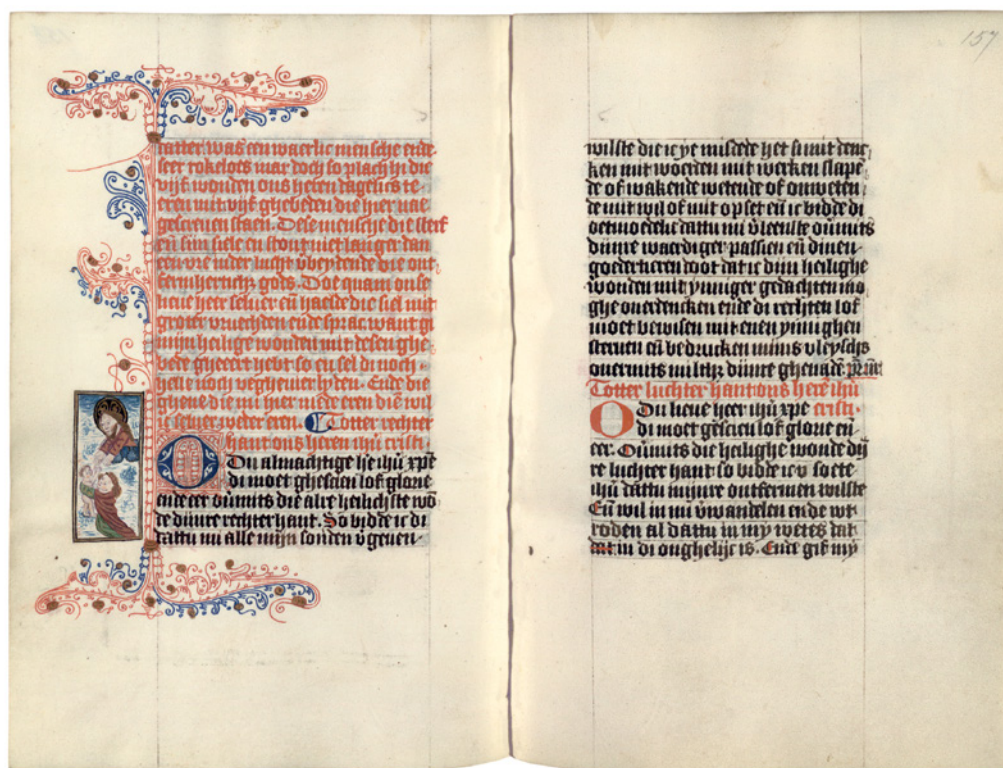 was een waerlic mensche ende
seer rokeloes mar doch so plach hi die
vijf wonden ons heren dagelics te
eren mit vijf ghebeden die hier nae
gescreuen staen. Dese mensche die sterf
eñ sijn siele en stont niet langer dan
een vre inder lucht v̄beydende die ont
fermhertich; gods. Doe quam onse
lieue heer seluer eñ haelde die siel mit
groter vruechden ende sprac want gi
mijn heilige wonden mit desen ghe
bede gheeert hebt so en sel di noch
helle noch veghevuer lyden. Ende die
ghene die mi hier mede eren die wil
ic seluer weder eren. Totter rechter
hant ons heren ihū cristi.
O Du almachtige he ihū xp̄e
di moet ghescien lof glorie
ende eer ou̅mits die alre heilichste wō
de dijnre rechter hant. So bidde ic di
dattu mi alle mijn sonden v̄geuen
157
wilste die ic ye misdede het si mit denc
ken mit woerden mit werken slapen
de of wakende wetende of onweten
de mit wil of mit opset eñ ic bidde di
oetmoedelic dattu mi v̄leenste ou̅mits
dijnre waerdiger passien eñ dinen
goedertieren doot dat ic dijn heilighe
wonden mit ynniger gedachten mo
ghe ouerdencken ende di rechten lof
moet bewisen mit enen ynnighen
steruen eñ bedrucken mijns vleyschs
ouermits dijnre ghenadē. pr̄ nr̄
Totter luchter hant ons herē ihū
O Du lieue heer ihū xpe cristi.
di moet gescien lof glorie eñ
eer. Ou̅mits die heilighe wonde dij
re luchter hant so bidde ic v soete
ihū dattu mijnre ontfermen wilste
Eñ wil in mi v̄wandelen ende wt
roden al dattu in my wetes dat
in di onghelijc is. Ende gif my